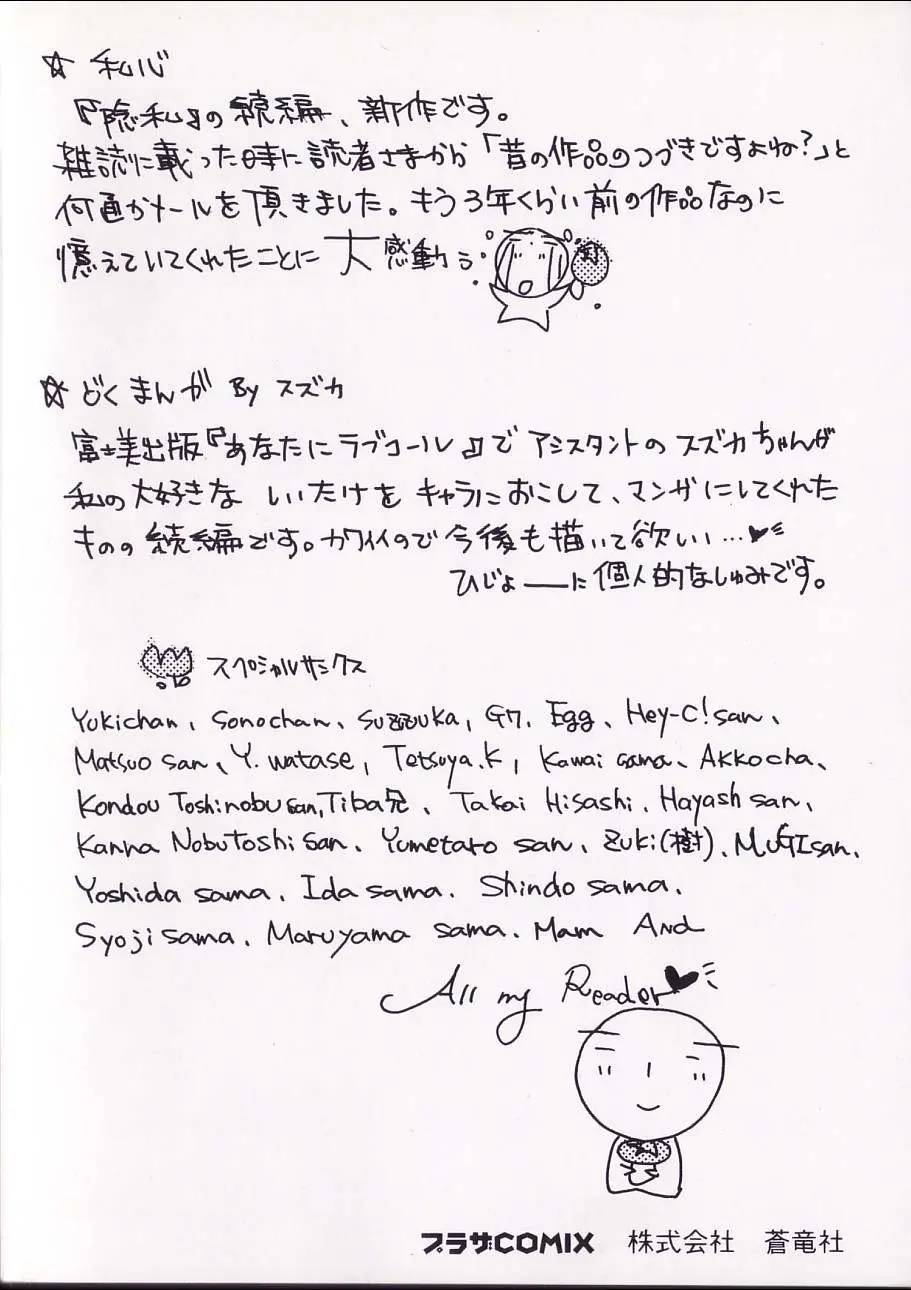 ☆ 私心
『隠私』の続編、新作です。
雑読に載った時に読者さまから「昔の作品のつづきですよね？」と
何通かメールを頂きました。もう3年くらい前の作品なのに
憶えていてくれたことに 大感動
☆ どくまんが By スズカ
富士美出版『あなたにラブコール』で アシスタントの スズカちゃんが
私の大好きな しいたけを キャラにおこして、マンガにしてくれた
ものの続編です。カワイイので今後も描いて欲しい…♥
ひじょーーに個人的なしゅみです。
スペシャルサンクス
Yukichan、Sonochan、Suzzuka, G7. Egg、Hey-C! san、
Matsuo san、Y. watase, Tetsuya.K, Kawai sama、Akkocha、
Kondou Toshinobu san, Tiba兄、Takai Hisashi. Hayash san、
Kanna Nobutoshi san、Yumetaro san、Zuki(樹). MUGI san、
Yoshida sama. Ida sama. Shindo sama.
Syoji sama. Maruyama sama. Mam And
All my Reader♥
プラザCOMIX 株式会社 蒼竜社